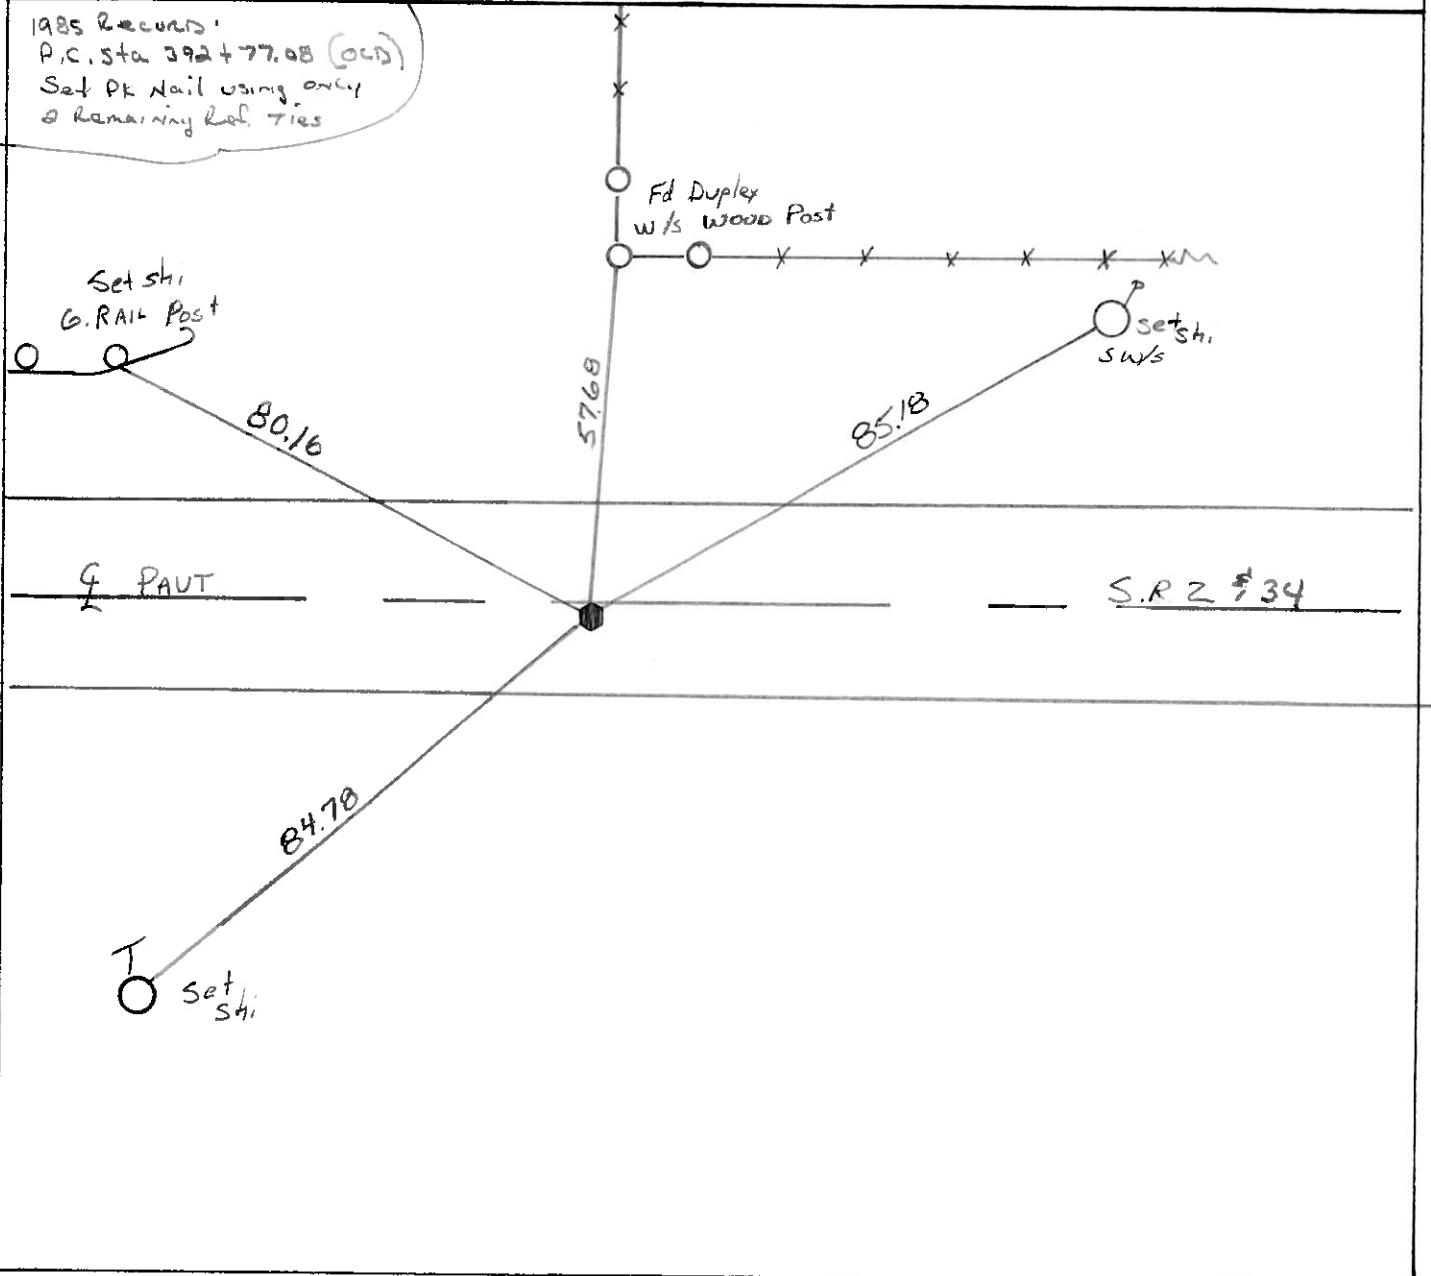 1985 Record:
P.C. Sta 392+77.08 (OLD)
Set Pk Nail using only
2 Remaining Ref. Ties
Fd Duplex
w/s WOOD Post
Set shi
G. RAIL Post
P
Set
shi
sw/s
80.16
57.68
85.18
℄ PAVT
S.R 2 & 34
84.78
T
Set
shi